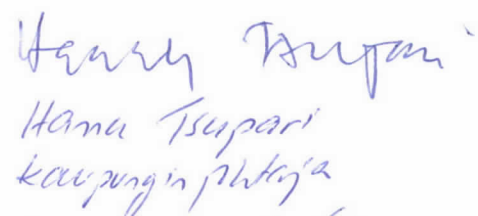 Hannu Tsupari
Hannu Tsupari
kaupunginjohtaja